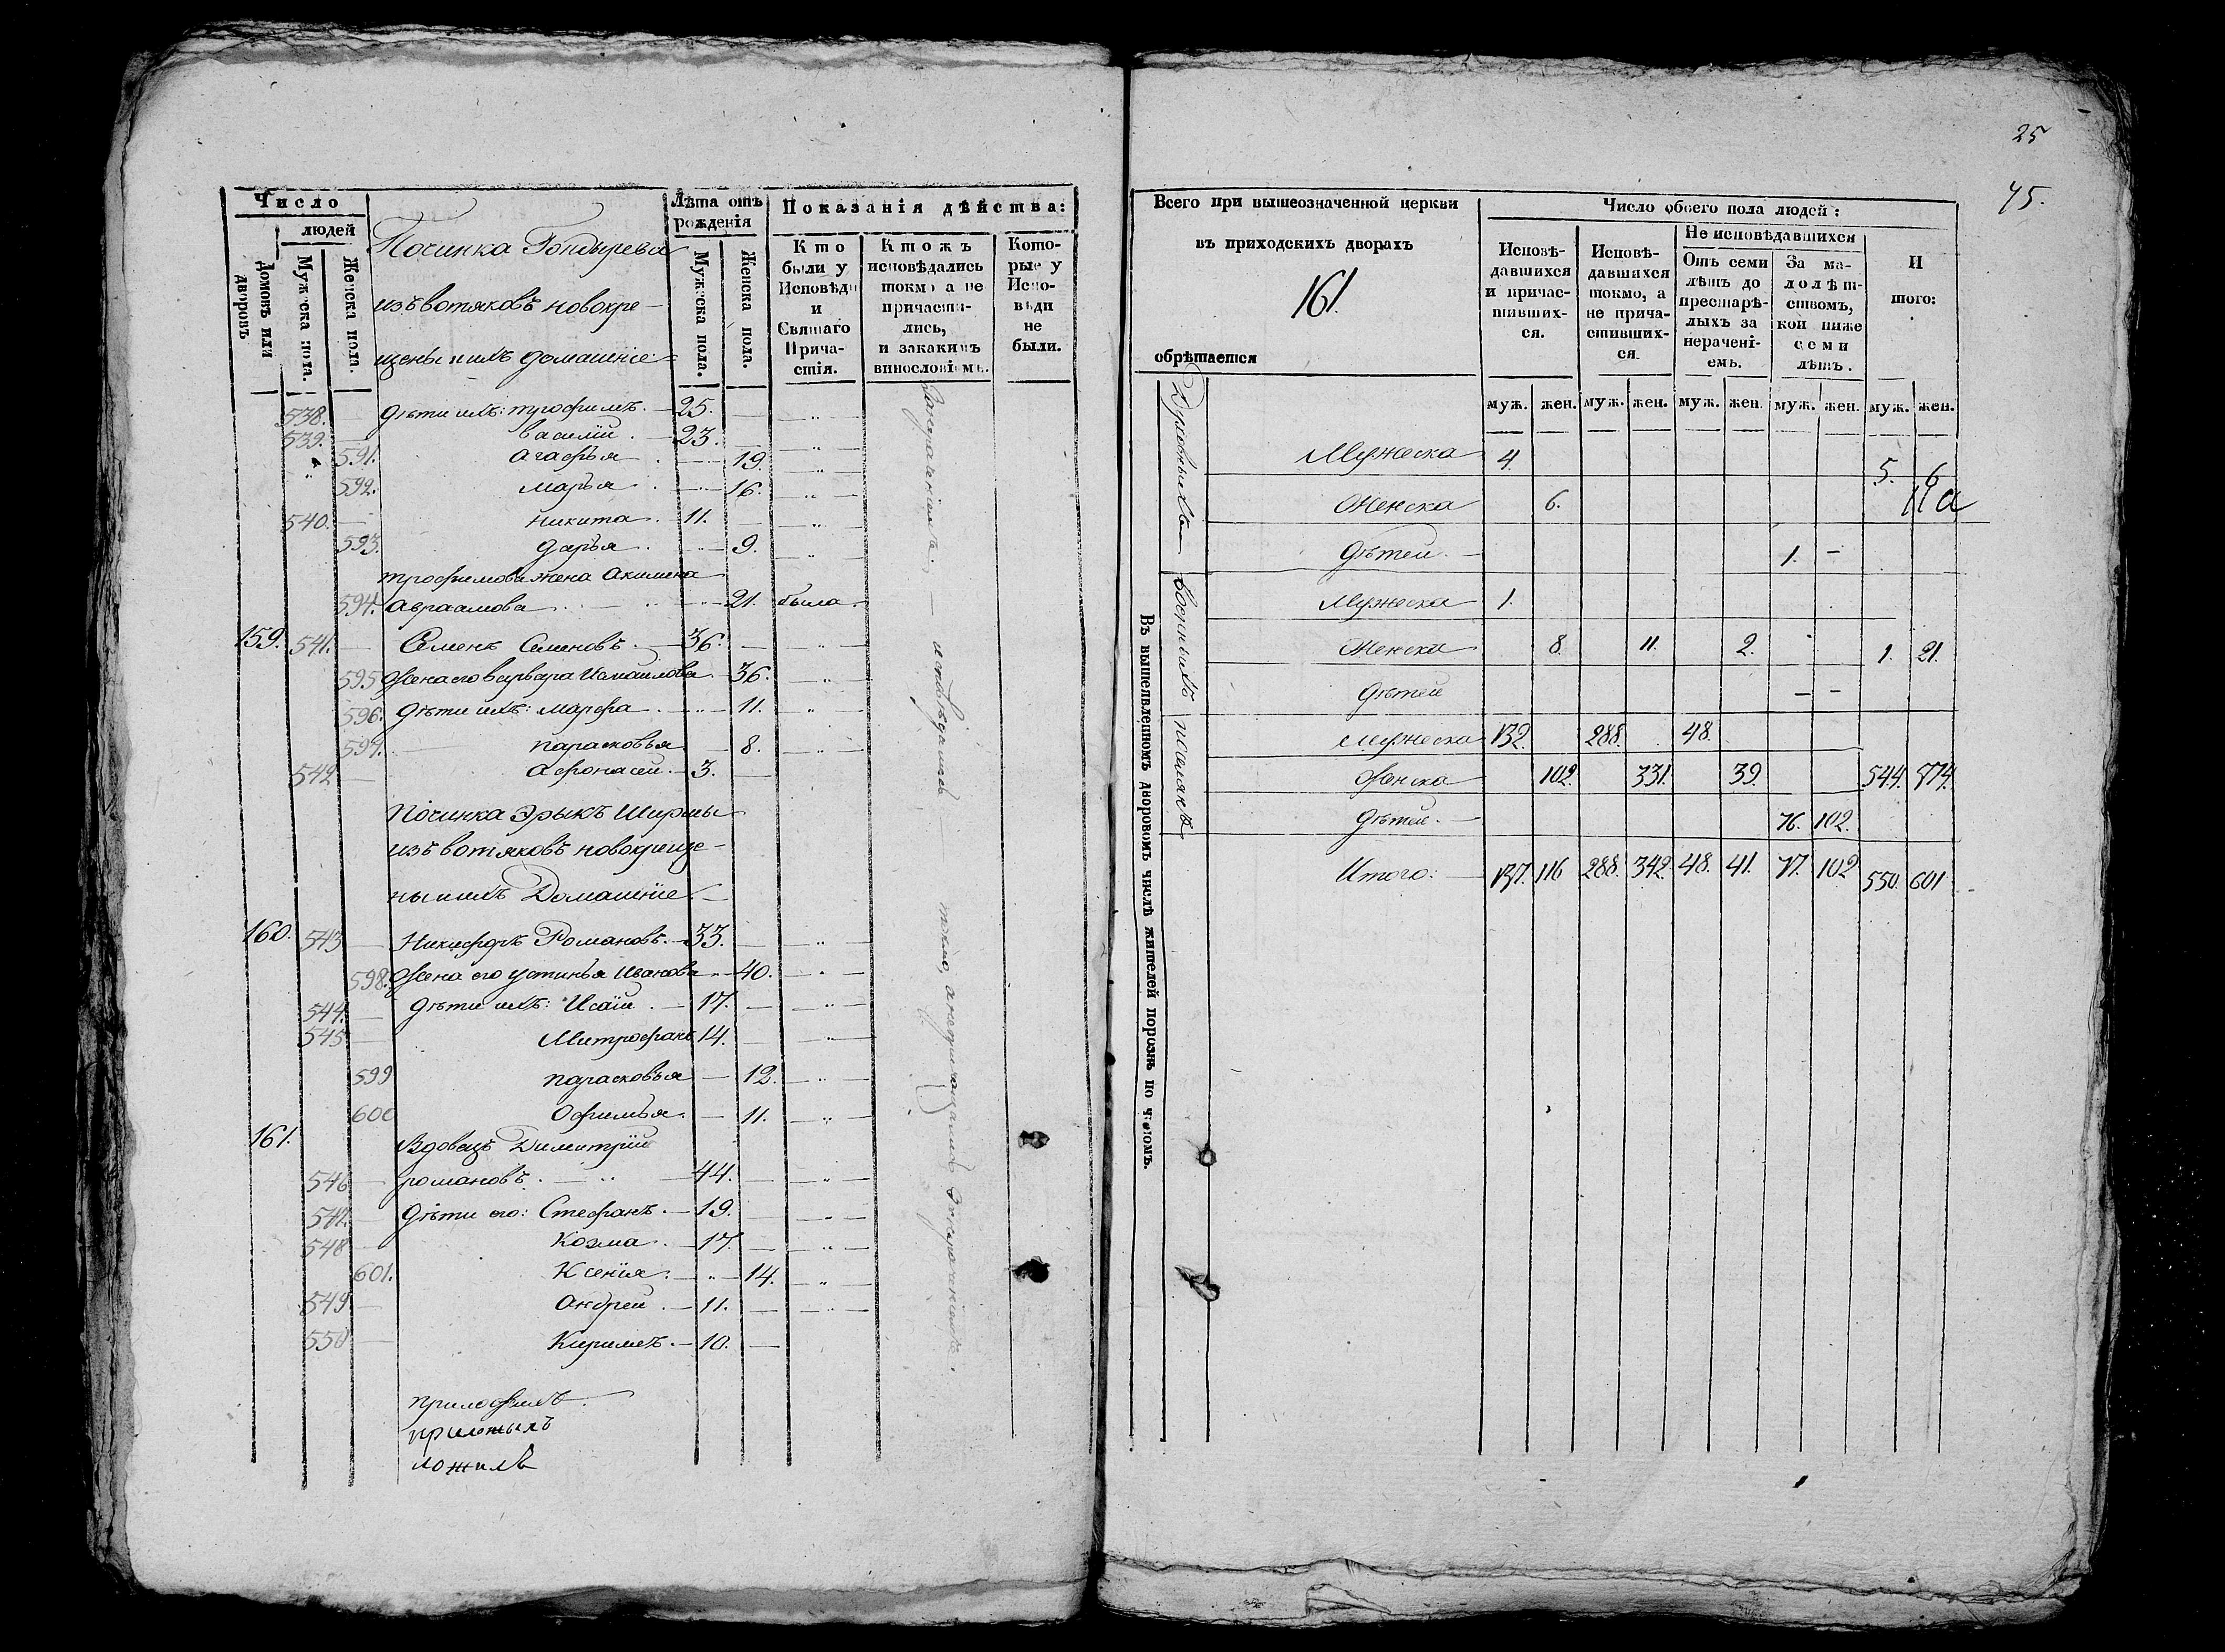 Число
людей
Домовъ или дворовъ
Мужеска пола.
Женска пола.
Починка Гондырева
изъ вотяковъ новокре-
щены и ихъ домашніе
Лѣта отъ рожденія
Мужеска пола.
Женска пола.
Показанія дѣйства:
Кто были у Исповѣди и Святаго Причастія.
Ктожъ исповѣдались токмо а не причастились, и закакимъ винословіемъ.
Которые у Исповѣди не были.
538. дѣти ихъ: трофимъ. 25.
539. василій. 23.
591. агафья 19.
592. марья 16.
540. никита. 11.
593. дарья. 9.
трофимова жена Акилина
594. авраамова 21. была.
159. 541. Семенъ Семеновъ. 36.
595 жена его варвара Измаилова. 36.
596. дѣти ихъ: марфа. 11.
597. парасковья 8.
542 афонасеи. 3.
Починка Эрыкъ Ширмы
изъ вотяковъ новокреще-
ны и ихъ Домашніе
160. 543 Никифоръ Романовъ. 33.
598. жена его устинья Иванова 40.
544. дѣти ихъ: Исаіи. 17.
545. Митрофанъ 14.
599 парасковья 12.
600 Офимья. 11.
161. Вдовецъ Димитрій
546 романовъ. 44.
547. дѣти его: Стефанъ. 19.
548 Козма. 17.
601. Ксенія. 14.
549. андреи. 11.
550 Кирилъ. 10.
исповѣдались токмо, а не
25
45.
Всего при вышеозначенной церкви
въ приходскихъ дворахъ
161.
обрѣтается
Число обоего пола людей:
Исповѣдавшихся и причастившихся.
Исповѣдавшихся токмо, а не причастившихся.
Не исповѣдавшихся
Отъ семи лѣтъ до престарѣлыхъ за нераченіемъ.
За малолѣтствомъ, кои ниже семи лѣтъ.
И того:
муж. жен. муж. жен. муж. жен. муж. жен. муж. жен.
Въ вышеявленномъ дворовомъ числѣ жителей порознь по чиномъ.
Духовныхъ
Мужеска 4. 5. 6
Женска 6. 11 а
Дѣтей. 1. –
Военныхъ
Мужеска 1.
Женска 8. 11. 2. 1. 21.
Дѣтей – –
поселянъ
Мужеска 132. 288. 48.
Женска 102. 331. 39. 544. 574.
Дѣтей. 76. 102.
Итого: 137. 116 288. 342. 48. 41. 77. 102 550. 601